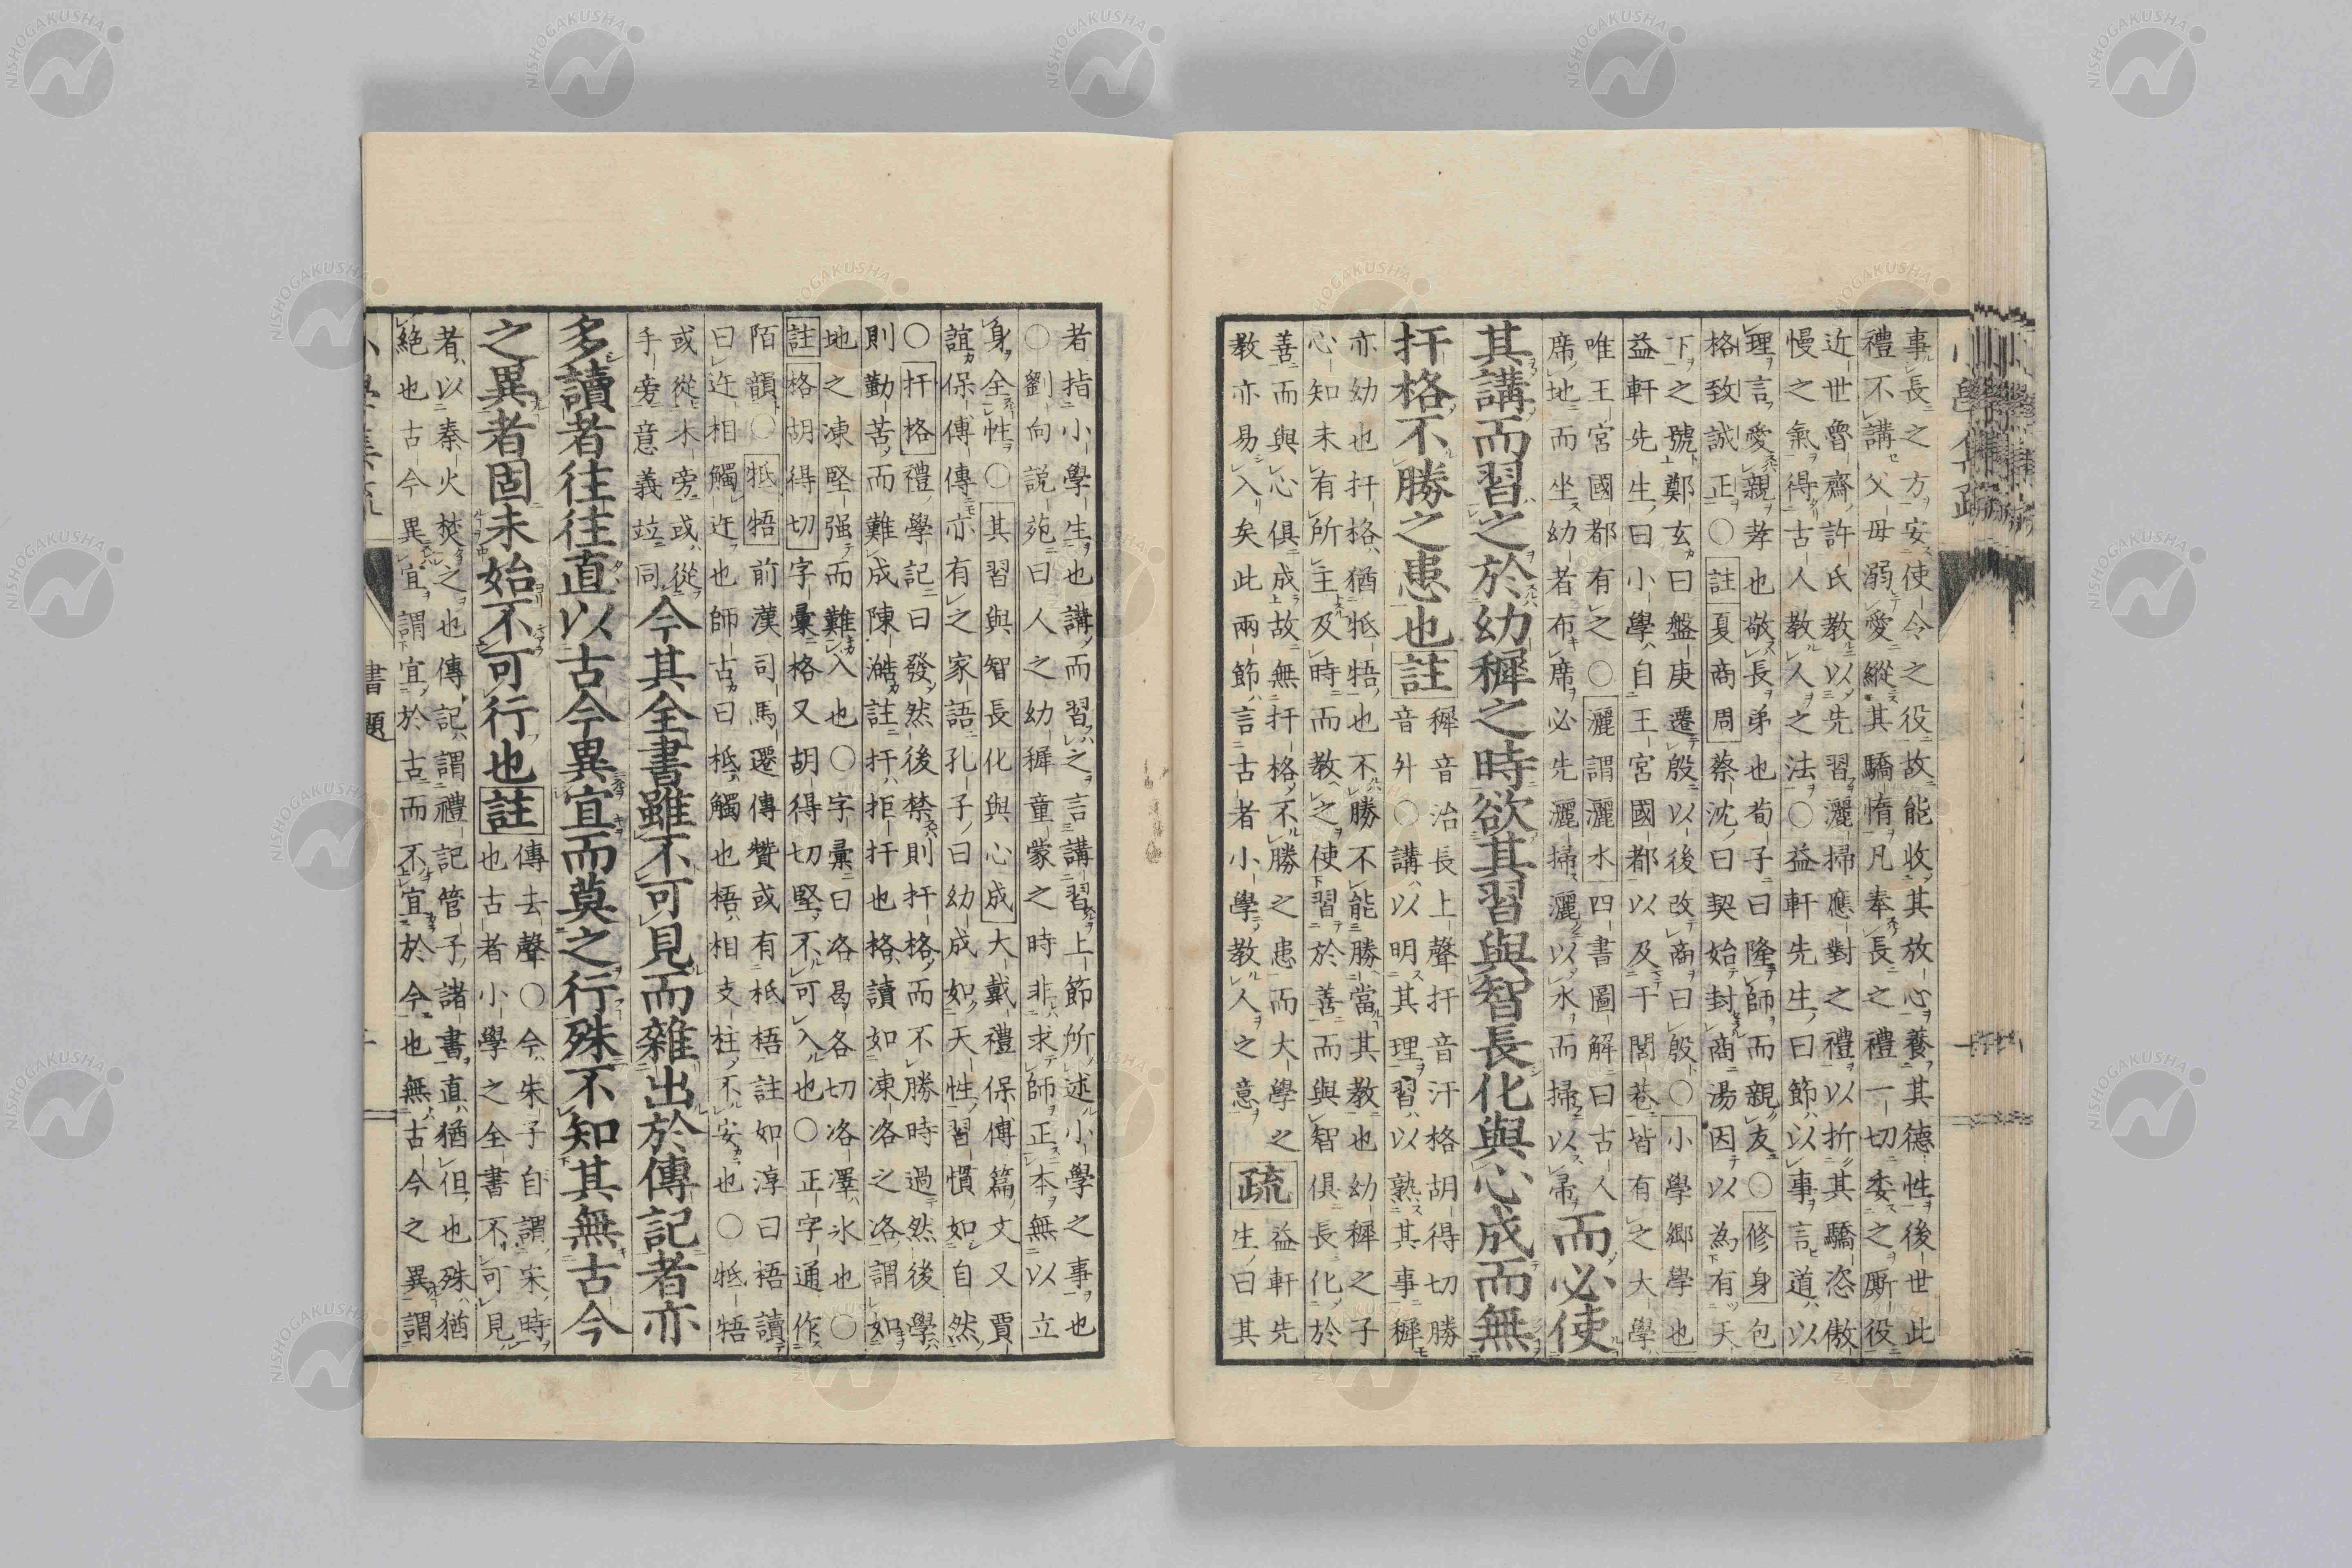 事長之方安使令之役故能收其放心養其德性後世此
禮不講父母溺愛縱其驕惰凡奉長之禮一切委之厮役
近世魯齋許氏教以先習灑掃應對之禮以折其驕恣傲
慢之氣得古人教人之法○益軒先生曰節以事言道以
理言愛親孝也敬長弟也荀子曰隆師而親友○修身包
格致誠正○註夏商周蔡沈曰契始封商湯因以為有天
下之號鄭玄曰盤庚遷殷以後改商曰殷○小學鄉學也
益軒先生曰小學自王宮國都以及于閭巷皆有之大學
唯王宮國都有之○灑謂灑水四書圖解曰古人
席地而坐幼者布席必先灑掃灑以水而掃以帚
而必使
其講而習之於幼穉之時欲其習與智長化與心成而無
扞格不勝之患也註
穉音治長上聲扞音汗格胡得切勝
音外○講以明其理習以熟其事穉
亦幼也扞格猶牴牾也不勝不能勝當其教也幼穉之子
心知未有所主及時而教之使習於善而與智俱長化於
善而與心俱成故無扞格不勝之患而大學之
教亦易入矣此兩節言古者小學教人之意
疏
益軒先
生曰其
者指小學生也講而習之言講習上節所述小學之事也
○劉向說苑曰人之幼穉童蒙之時非求師正本無以立
身全性○其習與智長化與心成大戴禮保傅篇文又賈
誼保傅傳亦有之家語孔子曰幼成如天性習慣如自然
○扞格禮學記曰發然後禁則扞格而不勝時過然後學
則勤苦而難成陳澔註扞拒扞也格讀如凍洛之洛謂如
地之凍堅强而難入也○字彙曰洛曷各切洛澤冰也○
註格胡得切字彙格又胡得切堅不可入也○正字通作
陌韻○牴牾前漢司馬遷傳贊或有柢梧註如淳曰梧讀
曰迕相觸迕也師古曰柢觸也梧相支柱不安也○牴牾
或從木旁或從
手旁意義竝同
今其全書雖不可見而雜出於傳記者亦
多讀者往往直以古今異宜而莫之行殊不知其無古今
之異者固未始不可行也註
傳去聲○今朱子自謂宋時
也古者小學之全書不可見
者以秦火焚之也傳記謂禮記管子諸書直猶但也殊猶
絕也古今異宜謂宜於古而不宜於今也無古今之異謂
書題
NISHOGAKUSHA